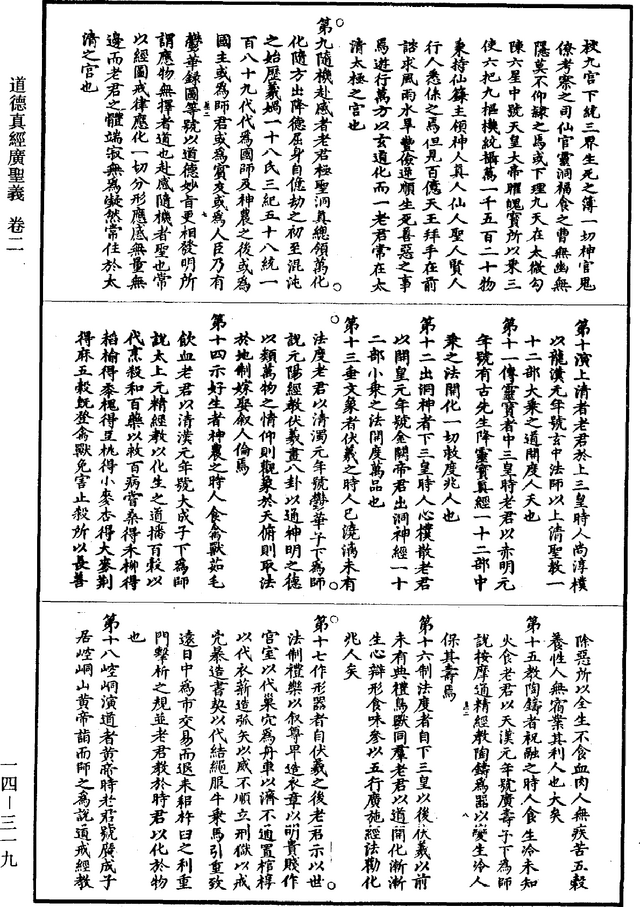 道德真經廣聖義 卷二
一四—三一九
校九官下統三界生死之簿一切神官鬼
僚考察之司仙官靈洞禍食之曹無幽無
隱莫不仰隸之焉或下理九天在太微勾
陳六星中號天皇大帝臞魄寶所以乘三
使六把九樞機統攝萬一千五百二十物
東持仙籙主領神人真人仙人聖人賢人
行人悉係之焉但見百億天王拜手在前
諮求風雨水旱豐儉逆順生死善惡之事
焉遊行萬方以玄道化而一老君常在太
清太極之宮也
第九隨機赴感者老君極聖洞真總領萬化
化隨方出降德屈身自億劫之初至混沌
之始歷羲媧一十八氏三紀五十八統一
百八十九代代為國師及神農之後或為
國主或為師君或為賓友或為人臣乃有
鬱華錄圖等號以道德妙旨更相發明所
謂應物無擇者道也赴感隨機者聖也常
以經圖戒律應化一切分形應感無量無
邊而老君之體端寂無為凝然常住於太
清之宮也
第十演上清者老君於上三皇時人尚淳樸
以龍漢元年號玄中法師以上清聖教一
十二部大乘之道開度人天也
第十一傳靈寶者中三皇時老君以赤明元
年號有古先生降靈寶真經一十二部中
乘之法開化一切救度兆人也
第十二出洞神者下三皇時人心樸散老君
以開皇元年號金闕帝君出洞神經一十
二部小乘之法開度萬品也
第十三垂文象者伏羲之時人已澆漓未有
法度老君以清濁元年號鬱華子下為師
說元陽經教伏羲畫八卦以通神明之德
以類萬物之情仰則觀象於天俯則取法
於地制嫁娶叙人倫焉
第十四示好生者神農之時人食禽獸茹毛
飲血老君以清漢元年號大成子下為師
說太上元精經教以化生之道播百穀以
代烹殺和百藥以救百病嘗桑得禾柳得
稻榆得黍槐得豆桃得小麥杏得大麥荊
得麻五穀旣登禽獸免害止殺所以長善
除惡所以全生不食血肉人無疾苦五穀
養性人無宿業其利人也大矣
第十五教陶鑄者祝融之時人食生冷未知
火食老君以天漢元年號廣壽子下為師
說按摩通精經教陶鑄為器以變生冷人
保其壽焉
第十六制法度者自下三皇以後伏羲以前
未有典禮鳥獸同羣老君以道開化漸漸
生心辯形食味參以五行廣施經法勸化
兆人矣
第十七作形器者自伏羲之後老君示以世
法制禮樂以叙尊卑造衣章以明貴賤作
宮室以代巢穴為舟車以濟不通置棺椁
以代衣薪造弧矢以威不順立刑獄以戒
兇暴造書契以代結繩服牛乘馬引重致
遠日中為市交易而退耒耜杵臼之利重
門擊柝之規並老君教於時君以化於物
也
第十八崆峒演道者黃帝時老君號廣成子
居崆峒山黃帝詣而師之為說道戒經教